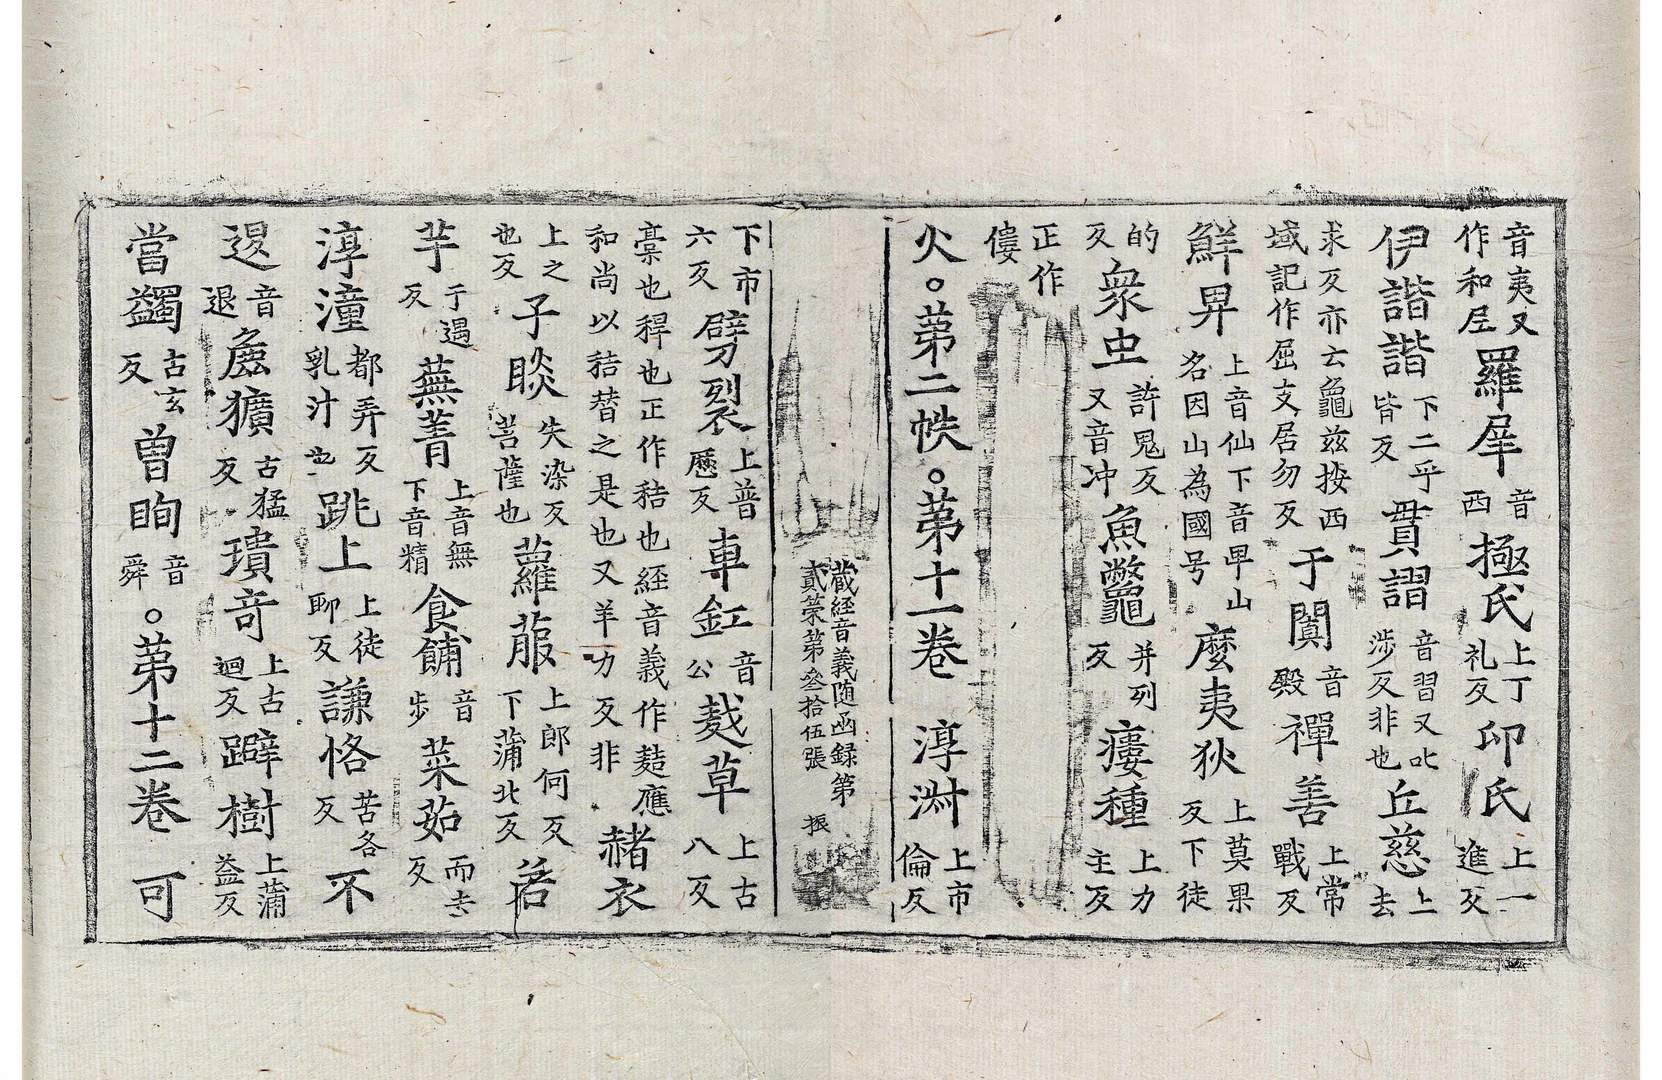 音夷又作和㞐羅犀音西極氏上丁礼反印氏上一進反
伊諧諧下二乎皆反貫謵音習又叱涉反非也丘慈上去
求反亦云龜兹按西域記作屈支居勿反于闐音殿禪善上常戰反
鮮昇上音仙下音卑山名因山為國号麼夷狄上莫果反下徒
的反衆虫許鬼反又音冲魚鼈并列反瘻種上力主反
正作僂
火。苐二帙。苐十一卷 淳淋上市倫反
藏經音義随函録第貳䇿第叄拾伍張 振
下市六反劈裂上普歷反車釭音公䴬草上古八反
稾也稈也正作秸也経音義作䴬應和尚以秸替之是也又羊力反非赭衣
上之也反子睒失染反菩薩也蘿菔上郎何反下蒲北反若
芋于遇反蕪菁上音無下音精食餔音步菜茹而去反
淳湩都弄反乳汁也跳上上徒聊反謙恪苦各反不
退音退麁獷古猛反瓌奇上古迴反躃樹上蒲益反
當蠲古玄反曽眴音舜。苐十二卷 可